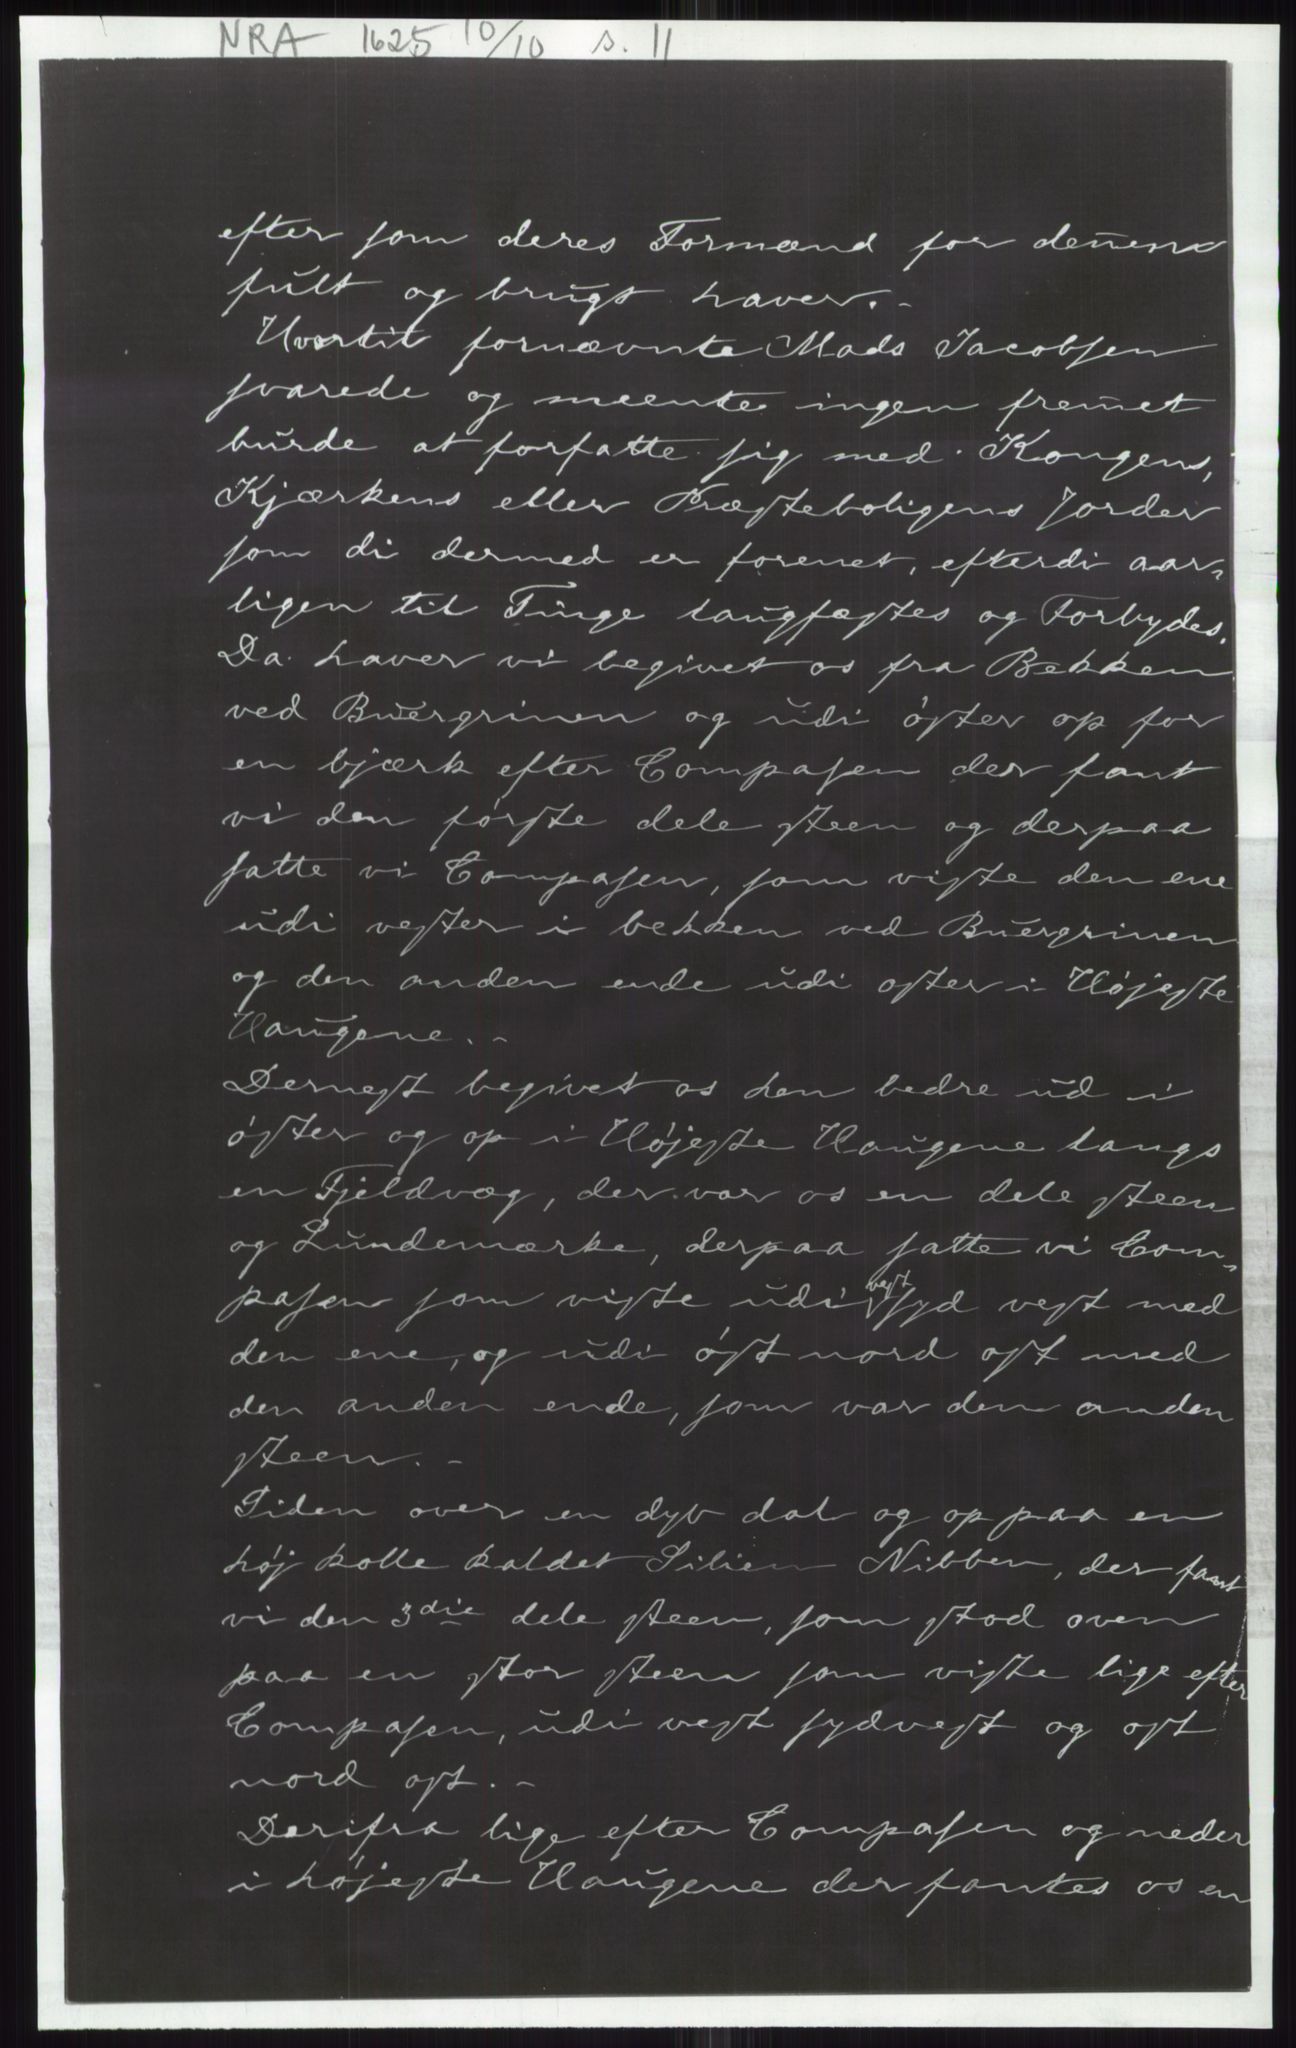 NRA 1625 10/10 s. 11
efter som deres Formænd for dennem
fult og brugt haver.-
Hvortil fornævnte Mads Jacobsen
svarede og meente ingen fremet
burde at forfatte sig med Kongens,
Kjærkens eller Præsteboligens Jorder
som di dermed er forenet, efterdi aar-
ligen til Tinge laugfæstes og Forbydes.
Da haver vi begivet os fra Bekken
ved Buergrinen og udi öster op for
en bjærk efter Compasen der fant
vi den förste dele steen og derpaa
satte vi Compasen, som viste den ene
udi vester i bekken ved Buergrinen
og den anden ende udi oster i Højeste
Haugene.-
Dernest begivet os hen bedre ud i
öster og op i Højeste Haugene langs
en Fjeldvæg, der var os en dele steen
og Lundemærke, derpaa satte vi Com-
pasen som viste udi vest syd vest med
den ene, og udi öst nord ost med
den anden ende, som var den anden
steen.-
Siden over en dyb dal og op paa en
høj kolle kaldet Silien Nibben, der fant
vi den 3die dele steen, som stod oven
paa en stor steen som viste lige efter
Compasen, udi vest sydvest og ost
nord ost.-
Derifra lige efter Compasen og neder
i højeste Haugene der fantes os en